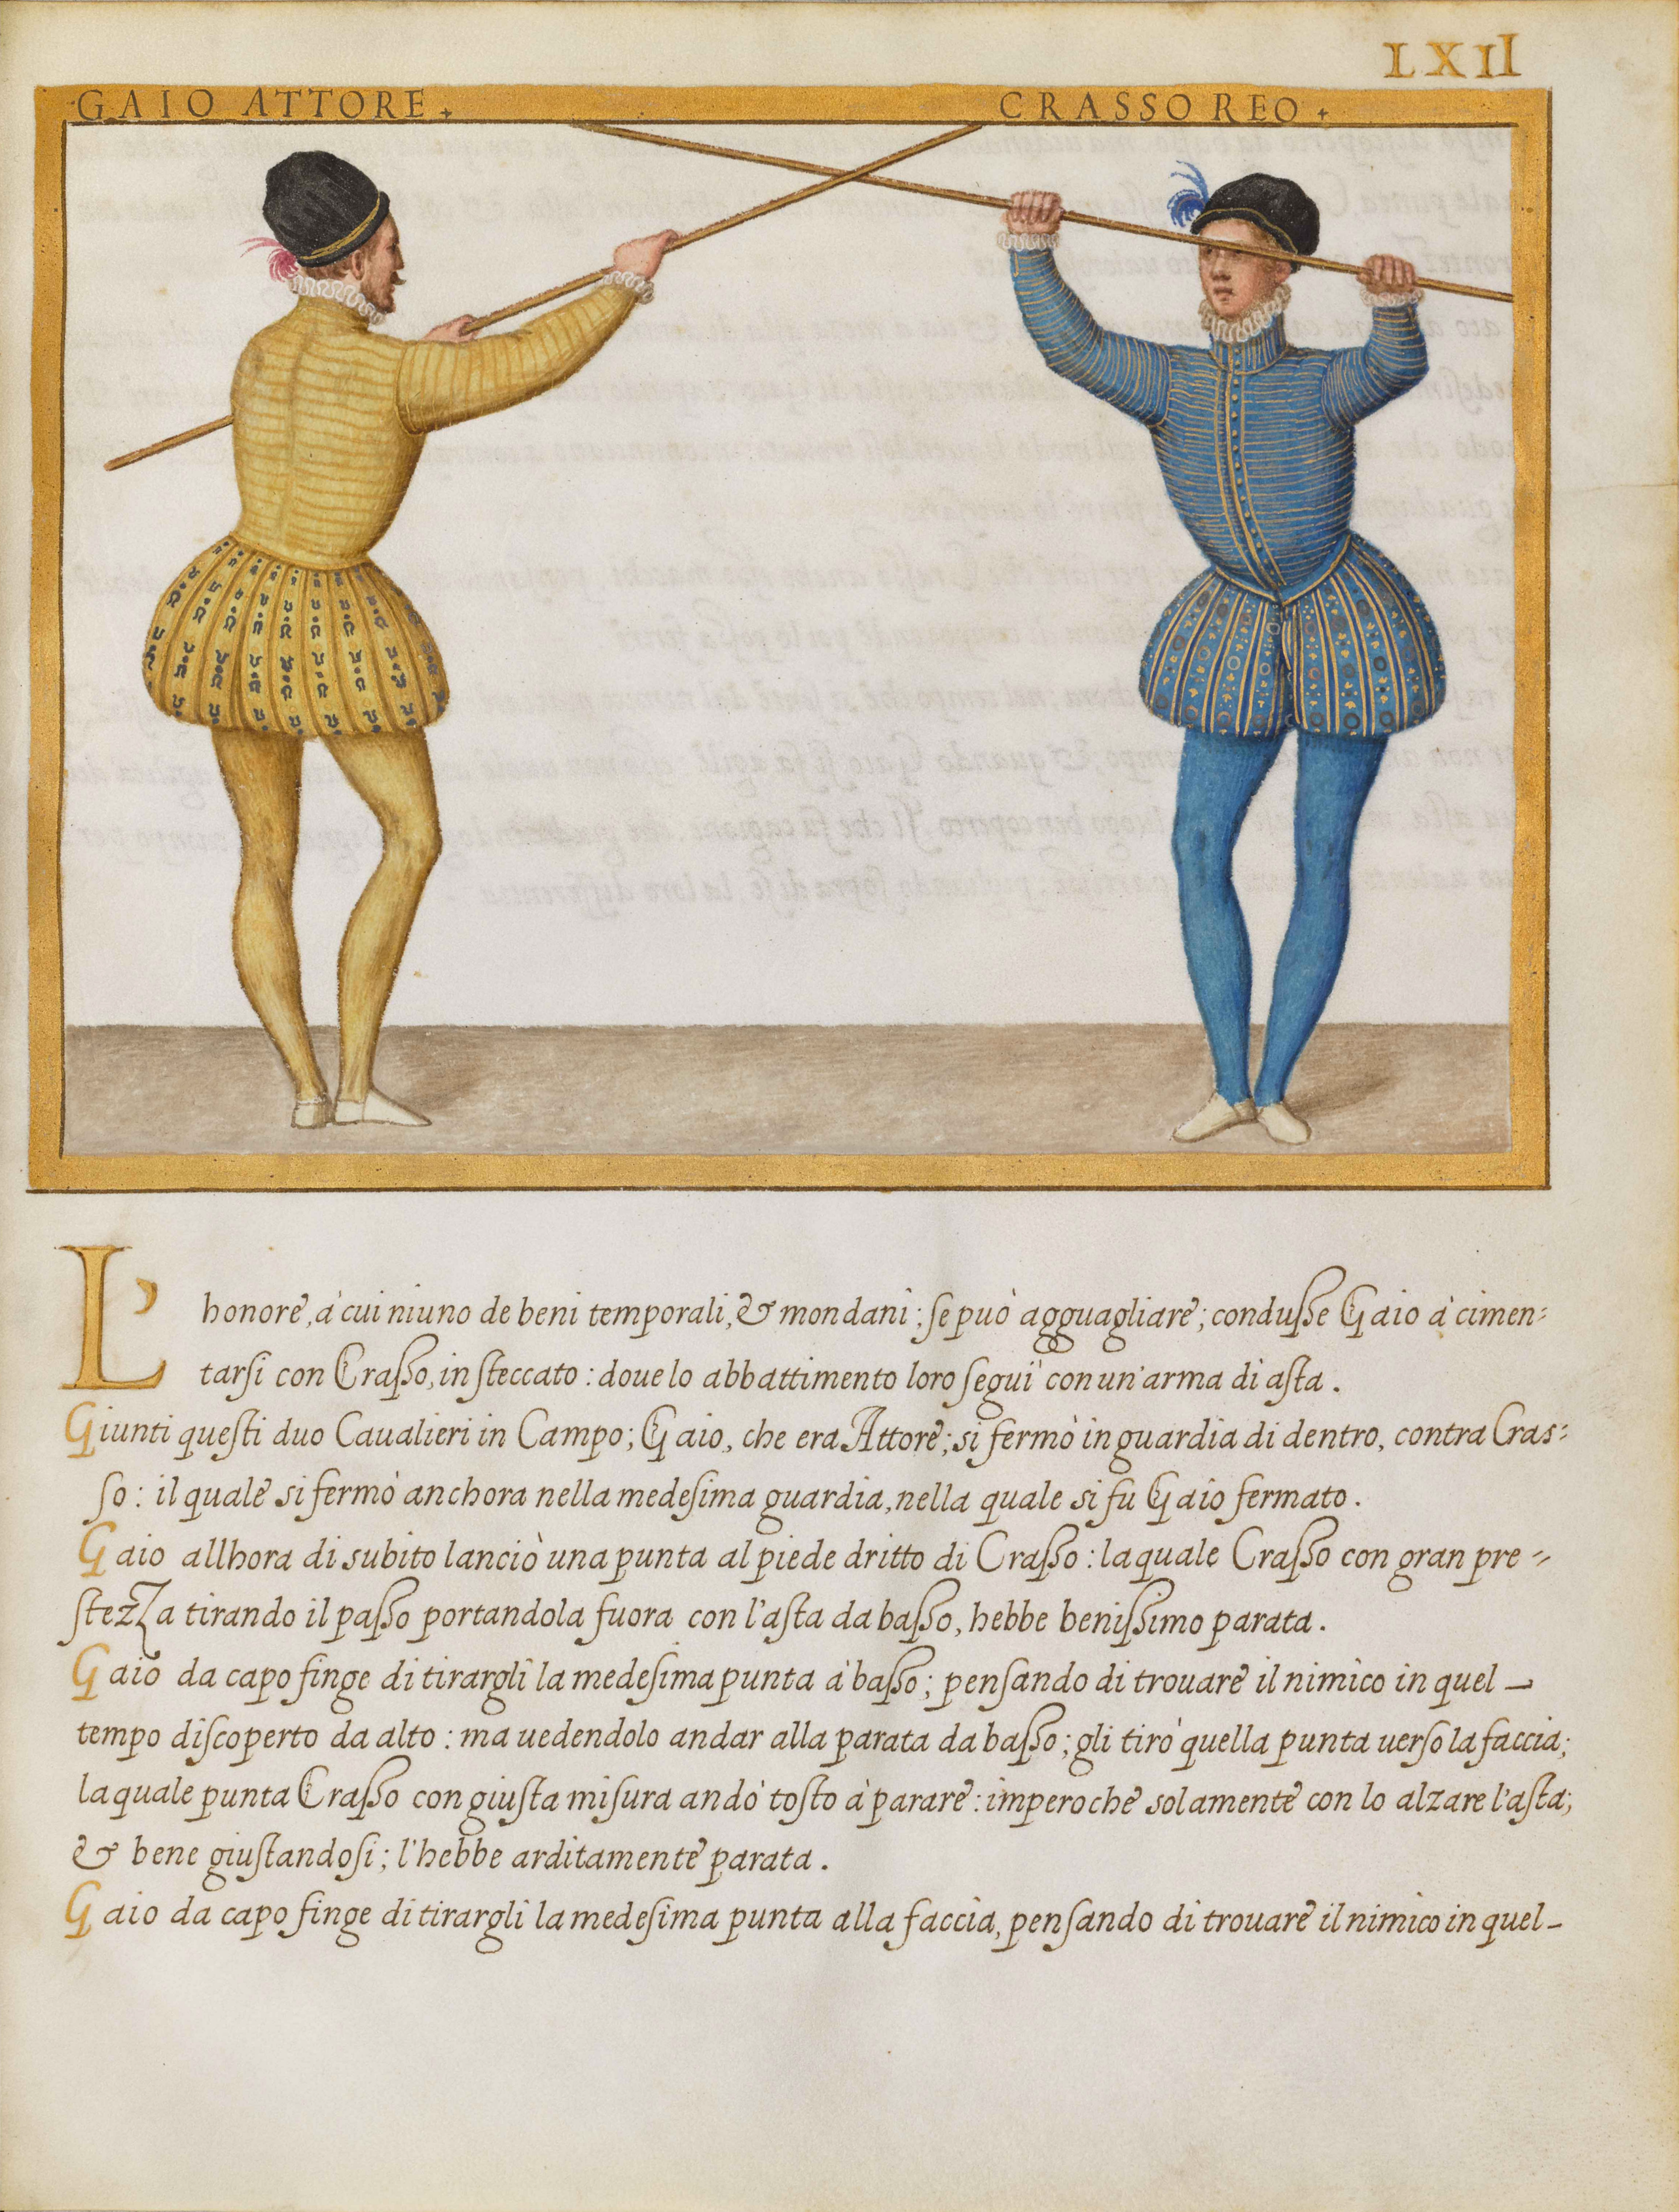 LXII
GAIO ATTORE.
CRASSO REO.
L'honore, à cui niuno de beni temporali, & mondani; se può agguagliare; condusse Gaio à cimen=
tarsi con Crasso, in steccato: doue lo abbattimento loro seguì con un'arma di asta.
Giunti questi duo Caualieri in Campo; Gaio, che era Attore; si fermò in guardia di dentro, contra Cras=
so: il quale si fermò anchora nella medesima guardia, nella quale si fu Gaio fermato.
Gaio allhora di subito lanciò una punta al piede dritto di Crasso: la quale Crasso con gran pre=
stezza tirando il passo portandola fuora con l'asta da basso, hebbe benissimo parata.
Gaio da capo finge di tirargli la medesima punta à basso; pensando di trouare il nimico in quel_
tempo discoperto da alto: ma uedendolo andar alla parata da basso; gli tirò quella punta uerso la faccia;
la quale punta Crasso con giusta misura andò tosto à parare: imperoche solamente con lo alzare l'asta;
& bene giustandosi; l'hebbe arditamente parata.
Gaio da capo finge di tirargli la medesima punta alla faccia, pensando di trouare il nimico in quel_